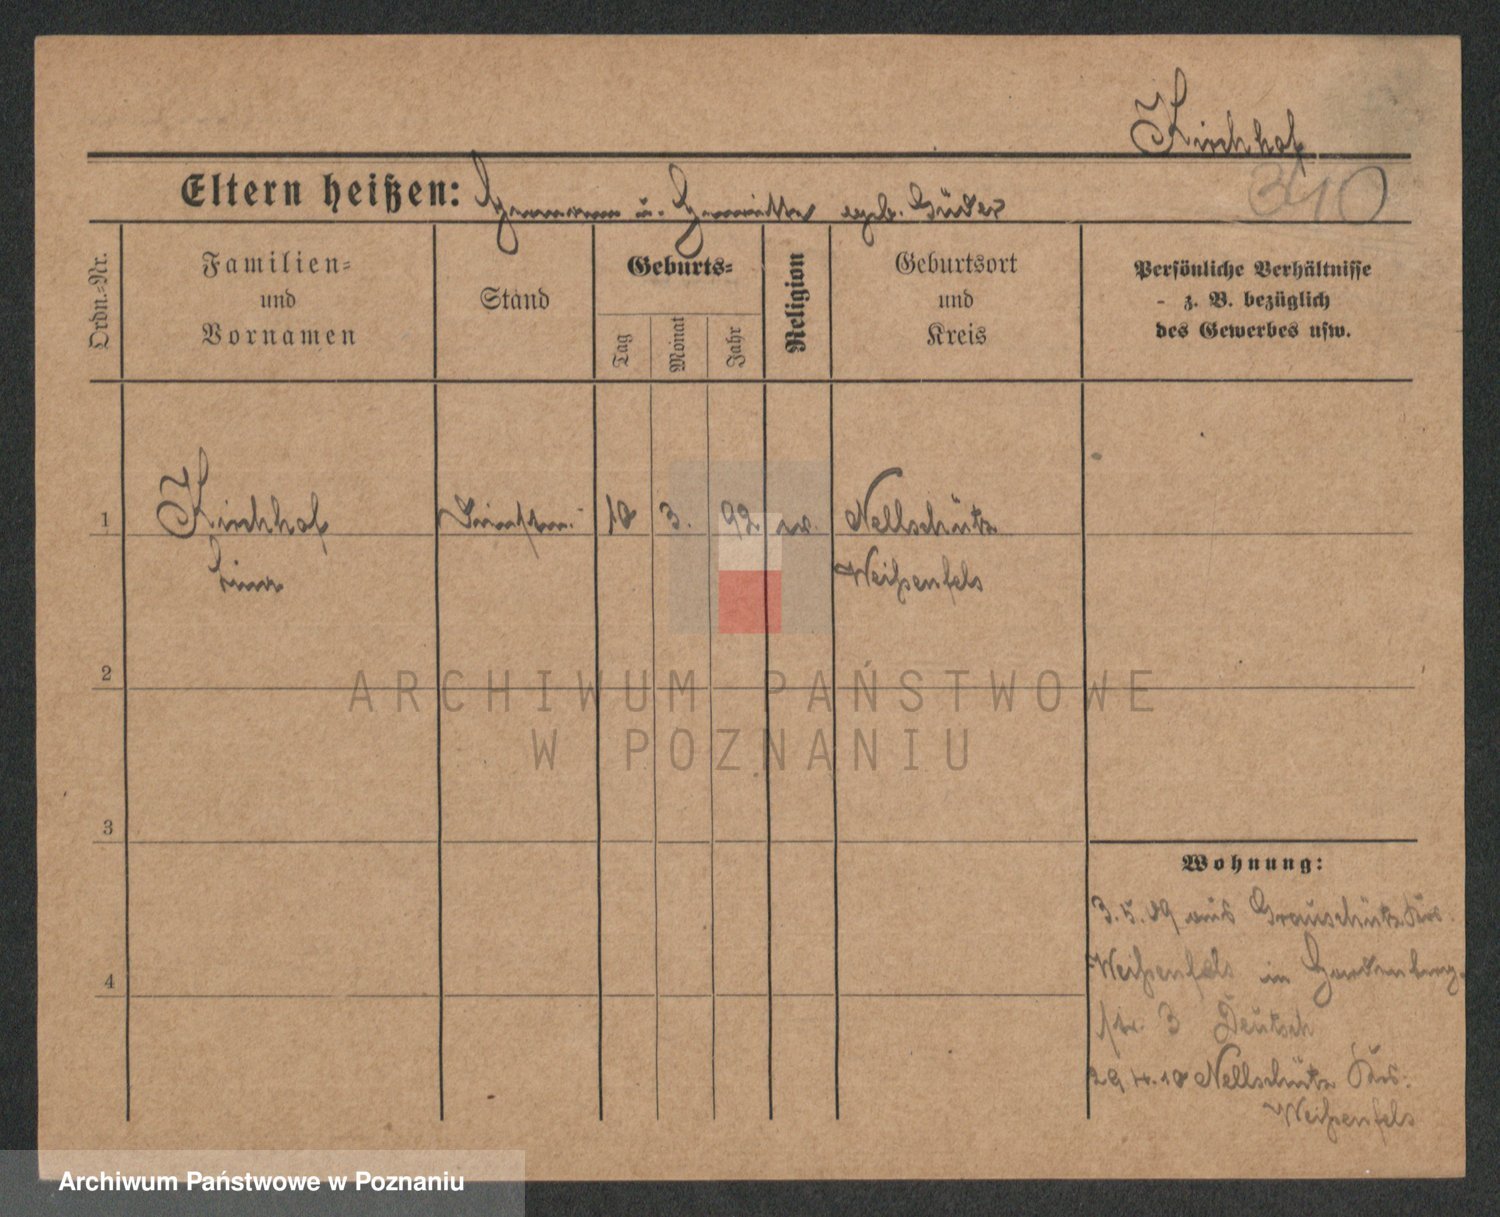 Kirchhof
340
Eltern heißen: Hermann u. Henriette geb. Güder
Ordn.-Nr.
Familien-
und
Vornamen
Stand
Geburts-
Tag
Monat
Jahr
Religion
Geburtsort
und
Kreis
Persönliche Verhältnisse
z. B. bezüglich
des Gewerbes usw.
1
Kirchhof
18
3.
92.
ev.
Nellschütz
Weißenfels
2
ARCHIWUM PAŃSTWOWE
W POZNANIU
3
Wohnung:
3.5.09 aus Grauschütz Krs.
4
Weißenfels in
str. 3 Deutsch
29.4.10 Nellschütz Krs.
Weißenfels
Archiwum Państwowe w Poznaniu